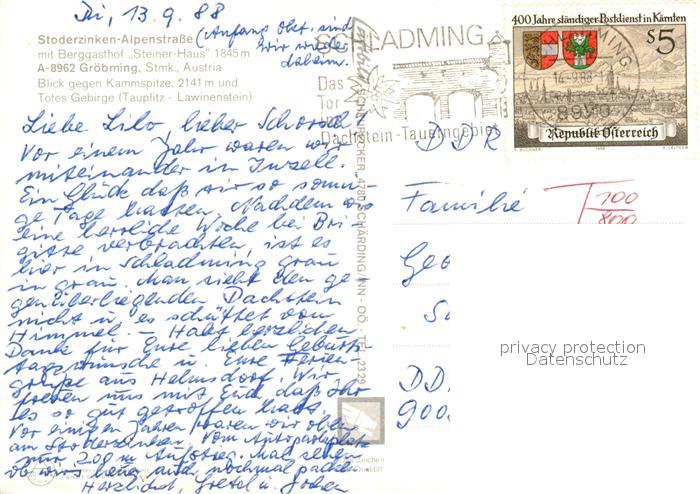 Di, 13.9.88
(Anfang Okt. sind
wir wieder
daheim.
Stoderzinken-Alpenstraße
mit Berggasthof „Steiner-Haus" 1845 m
A-8962 Gröbming, Stmk., Austria
Blick gegen Kammspitze, 2141 m und
Totes Gebirge (Tauplitz - Lawinenstein)
Liebe Lilo, lieber Schorsch!
Vor einem Jahr waren wir
miteinander in Inzell.
Ein Glück daß wir so sonni-
ge Tage hatten. Nachdem wir
eine herrliche Woche bei Bri-
gitte verbrachten, ist es
hier in Schladming grau
in grau. Man sieht den ge-
genüberliegenden Dachstein
nicht u. es schüttet vom
Himmel. – Habt herzlichen
Dank für Eure lieben Geburts-
tagswünsche u. Eure Ferien-
grüße aus Helmsdorf. Wir
freuen uns mit Euch, daß Ihr
es so gut getroffen habt.
Vor einigen Jahren waren wir oben
am Stoderzinken. Vom Autoparkplatz
nur 200 m Aufstieg. Mal sehen
ob wir's heuer auch nochmal packen.
Herzlichst, Gretel u.
SCHLADMING
Das
Tor
im
Dachstein-Tauerngebiet
4780 SCHÄRDING/INN - OÖ. TEL.
400 Jahre ständiger Postdienst in Kärnten
S 5
14.-9.88
Republik Österreich
DDR
Familie
T 100
Geo
DD
900
privacy protection
Datenschutz